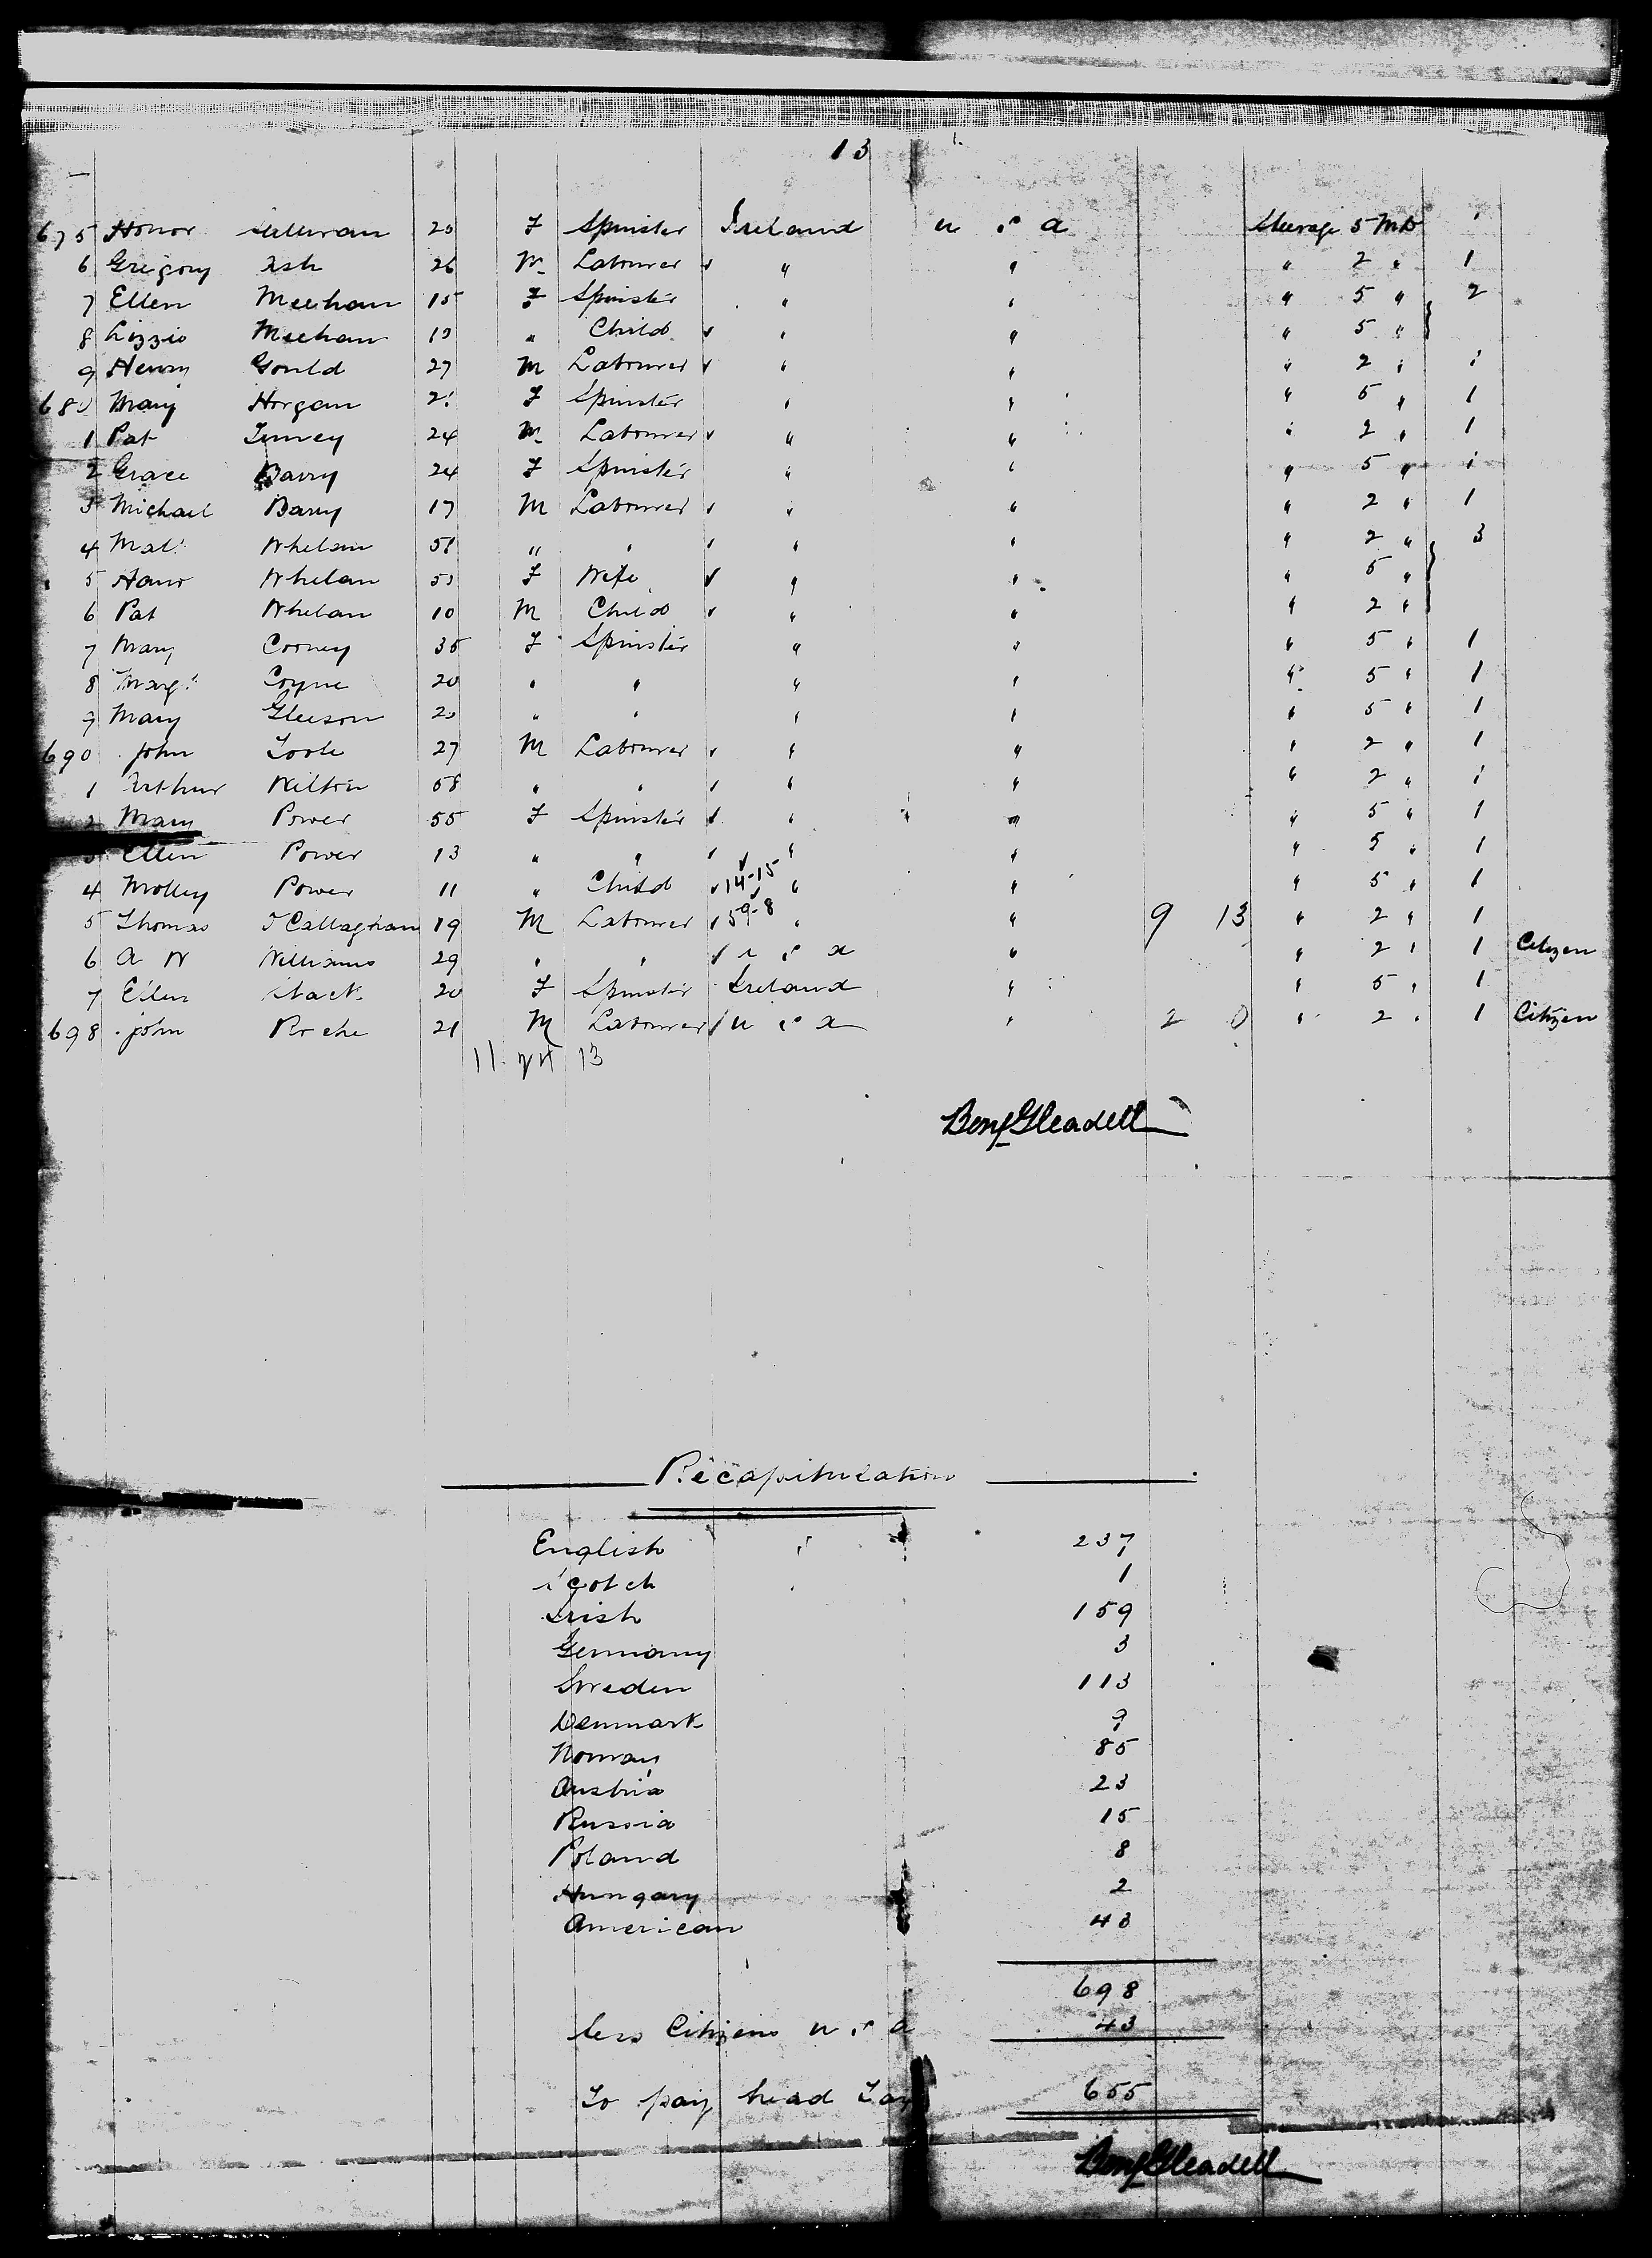 13
675 Honor Sullivan 20 F Spinster Ireland U S A Steerage 5 Mid 1
6 Gregory Ash 26 M Labourer " " " 2 " 1
7 Ellen Meehan 15 F Spinster " " " 5 " 2
8 Lizzie Meehan " Child " " " 5 "
9 Henry Gould 27 M Labourer " " " 2 " 1
680 Mary Horgan F Spinster " " " 5 " 1
1 Pat 24 M Labourer " " " 2 " 1
2 Grace Barry 24 F Spinster " " " 5 " 1
3 Michael Barry 17 M Labourer " " " 2 " 1
4 Mat: Whelan 51 " " " " " 2 " 3
5 Whelan 50 F Wife " " " 5 "
6 Pat Whelan 10 M Child " " " 2 "
7 Mary Cooney 35 F Spinster " " " 5 " 1
8 Margt Coyne 20 " " " " " 5 " 1
9 Mary Gleeson 20 " " " " " 5 " 1
690 John Toole 27 M Labourer " " " 2 " 1
1 Arthur Wilton 58 " " " " " 2 " 1
2 Mary Power 55 F Spinster " " " 5 " 1
3 Ellen Power 13 " " " " " 5 " 1
4 Molley Power 11 " Child 14-15 " " " 5 " 1
5 Thomas O'Callaghan 19 M Labourer 59-8 " " 9 13 " 2 " 1
6 A W Williams 29 " " U S A " " 2 " 1 Citizen
7 Ellen Stack 20 F Spinster Ireland " " 5 " 1
698 John Roche 21 M Labourer U S A " 2 0 " 2 " 1 Citizen
11 24 13
Benj Gleadell
Recapitulation
English 237
Scotch 1
Irish 159
Germany 3
Sweden 113
Denmark 9
Norway 85
Austria 23
Russia 15
Poland 8
Hungary 2
American 43
698
less Citizens U S A 43
To pay head Tax 655
Benj Gleadell